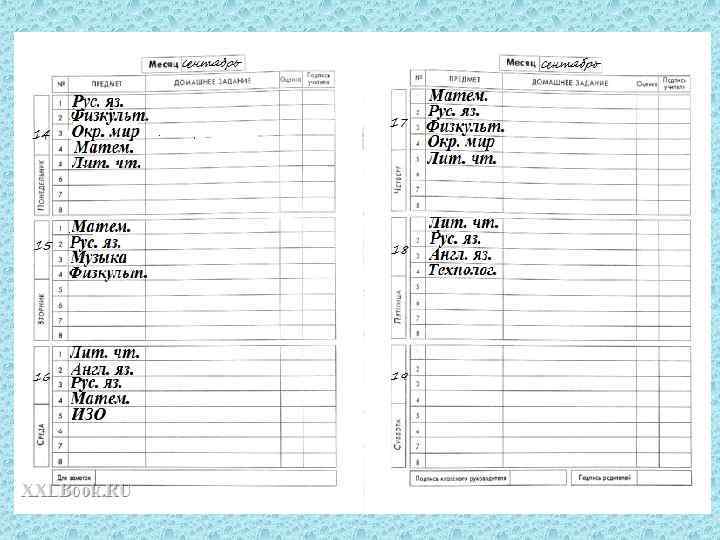 Месяц сентябрь
№ ПРЕДМЕТ ДОМАШНЕЕ ЗАДАНИЕ Оценка Подпись учителя
14 ПОНЕДЕЛЬНИК
1 Рус. яз.
2 Физкульт.
3 Окр. мир
4 Матем.
5 Лит. чт.
6
7
8
15 ВТОРНИК
1 Матем.
2 Рус. яз.
3 Музыка
4 Физкульт.
5
6
7
8
16 СРЕДА
1 Лит. чт.
2 Англ. яз.
3 Рус. яз.
4 Матем.
5 ИЗО
6
7
8
Для заметок
Месяц сентябрь
№ ПРЕДМЕТ ДОМАШНЕЕ ЗАДАНИЕ Оценка Подпись учителя
17 ЧЕТВЕРГ
Матем.
Рус. яз.
3 Физкульт.
Окр. мир
5 Лит. чт.
6
7
8
18 ПЯТНИЦА
Лит. чт.
2 Рус. яз.
3 Англ. яз.
4 Технолог.
5
6
7
8
19 СУББОТА
2
3
4
5
6
7
8
Подпись классного руководителя
Подпись родителей
XXLBook.RU